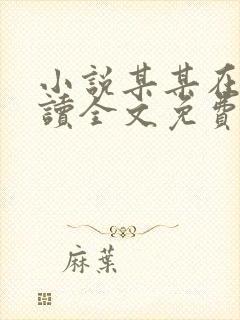 小說某某在
讀全文免費
麻葉